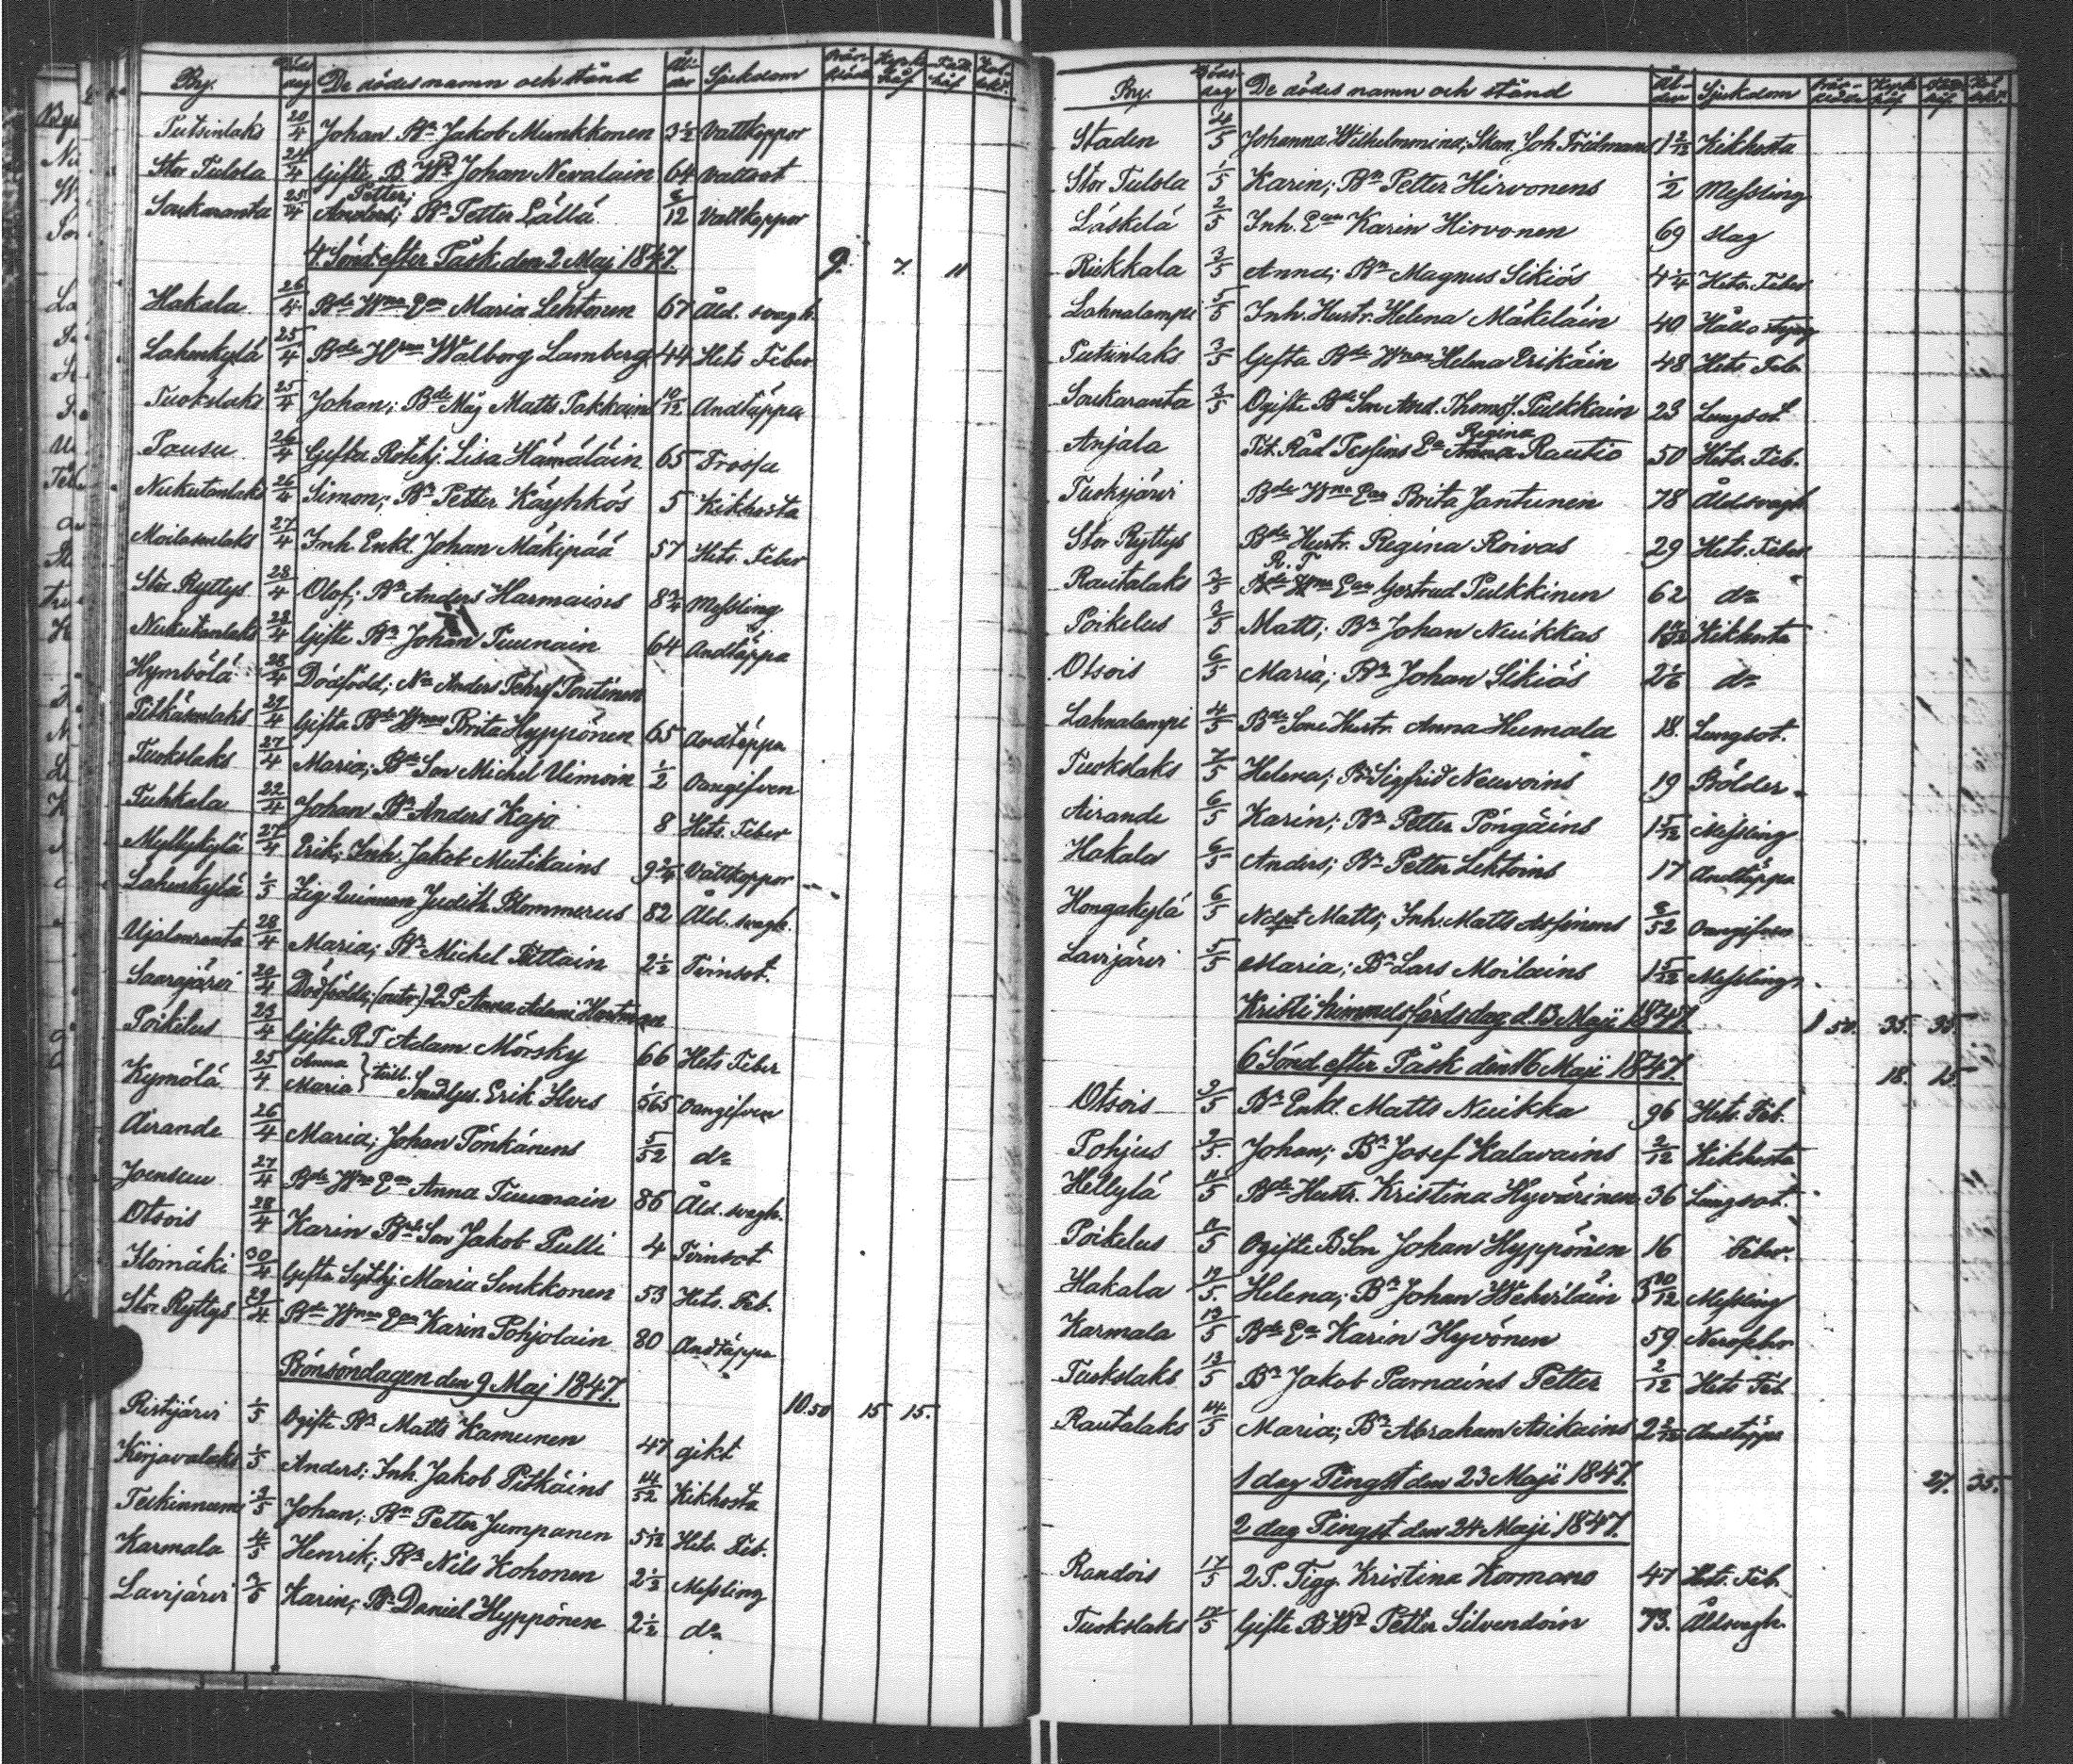 By. Döds dag De dödes namn och stånd Ålder Sjukdom
Putsinlaks 20/4 Johan Bn Jakob Munkkonen 3 1/2 Vattkoppor
Stor Tulola 24/4 Gifte B. Wd Johan Nevalain 64 Vattsot
Petter;
Soukaranta 25/4 Anders; Bn Petter Lällä 6/12 Vattkoppor
4. Sönd. efter Påsk den 2 Maj 1847. 9. 7. 11
Hakala 26/4 Bde Wman Ean Maria Lehtonen 67 Åld. svagh.
Lahenkylä 25/4 Bde Wman Walborg Lamberg 44 Hets Feber
Tuokslaks 25/4 Johan; Bde Måg Matts Pakkains 10/12 Andtäppa
Pausu 26/4 Gifta Rotehj. Lisa Hämäläin 65 Trossju
Nukutanlaks 26/4 Simon; Bn Petter Käyhkös 5 Kikhosta
Moilasenlaks 27/4 Inh. Enkl. Johan Mäkipää 57 Hets. Feber
Stor Ryttys 28/4 Olof; Bn Anders Harmains 8 3/4 Messling
Nukutanlaks 28/4 Gifte Bn Johan Tuunain 64 Andtäppa
Hymbölä 28/4 Dödfödd; Nn Anders Pehrss Poutinen
Pitkäsenlaks 29/4 Gifta Bde Wman Brita Hyppönen 65 Andtäppa
Tuokslaks 27/4 Maria; Bde Son Michel Uimoin 1/2 Oangifven
Tuhkala 22/4 Johan Bn Anders Kaja 8 Hets. Feber
Myllykylä 27/4 Erik; Inh. Jakob Mutikains 9 3/4 Vattkoppor
Lahenkylä 1/5 Fig Quinnan Judith Blommerus 82 Åld. svagh.
Ujalanranta 28/4 Maria; Bn Michel Pittain 2 1/2 Tvinsot.
Saarajärvi 20/4 Dödfödde; (outr.) 2 P Anna Adami Hartman
Poikelus 23/4 Gifte R. T Adam Mörsky 66 Hets Feber
Anna
Kymölä 25/4 Maria } tvill. Smedgs. Erik Ihes 5/365 Oangifven
Airande 26/4 Maria; Johan Pönkänens 5/52 do
Joensuu 27/4 Bde Wman Ean Anna Tuunanain 86 Åld. svagh.
Otsois 28/4 Karin Bde Son Jakob Pulli 4 Tvinsot
Ilomäki 30/4 Gifta Sythj. Maria Sinkkonen 53 Hets. Feb.
Stor Ryttys 29/4 Bde Wman Ean Karin Pohjolain 80 Andtäppa
Bönsöndagen den 9 Maj 1847. 10.50 15 15.
Ristijärvi 1/5 Ogifte Bn Matts Kamunen 47 gikt
Kirjavalaks 1/5 Anders; Inh. Jakob Pitkäins 14/52 Kikhosta
3/5 Johan; Bn Petter Jumpanen 5 1/12 Hets. Feb.
Karmala 4/5 Henrik; Bn Nils Kohonen 2 1/2 Messling
Lavijärvi 3/5 Karin; Bn Daniel Hyppönen 2 1/2 do
By. Döds dag De dödes namn och stånd Ålder Sjukdom
Staden 4/5 Johanna Wilhelmina; Skom. Joh Fridmans 1 2/12 Kikhosta
Stor Tulola 1/5 Karin; Bn Petter Hirvonens 1/2 Messling
Läskelä 2/5 Inh. Ean Karin Hirvonen 69 slag
Riekkala 3/5 Anna; Bn Magnus Sikiös 4 1/4 Hets. Feber
Lahnalampi 5/5 Inh. Hustr. Helena Mäkeläin 40 Håll o styng
Putsinlaks 3/5 Gifta Bde Wman Helena Erikäin 48 Hets Feb.
Soukaranta 3/5 Ogifte Bde Son And. Thomss. Pulkkain 23 Lungsot.
Regina
Anjala Tit. Råd Tessins En Anna Rautio 50 Hets. Feb.
Tuoksjärvi Bde Wman Ean Brita Jantunen 78 Åldsvagh
Stor Ryttys Bde Hustr. Regina Roivas 29 Hets. Feber
R. T
Rautalaks 3/5 Bde Wman Ean Gertrud Pulkkinen 62 do
Poikelus 3/5 Matts; Bn Johan Nuikkas Kikhosta
Otsois 6/5 Maria; Bn Johan Sikiös 2 1/6 do
Lahnalampi 4/5 Bde Sone Hustr. Anna Humala 18. Lungsot.
Tuokslaks 7/5 Helena; Bn Sigfrid Neuvoins 19 Bölder
Airande 6/5 Karin; Bn Petter Pöngäins 1 5/12 Messling
Hakala 6/5 Anders; Bn Petter Lehtoins 17 Andtäppa
Hongakylä 6/5 Ndpt Matts; Inh. Matts Assinens 3/52 Oangifven
Lavijärvi 5/5 Maria; Bn Lars Moilains 1 5/12 Messling
Kristi himmelsfärdsdag d. 13 Maji 1847. 1 50. 35. 35.
6 Sönd efter Påsk den 16 Maji 1847. 18. 15.
Otsois 9/5 Bn Enkl. Matts Nuikka 96 Hets. Feb.
Pohjus 9/5 Johan; Bn Josef Kalavains 2/12 Kikhosta
Hellylä 11/5 Bde Hustr. Kristina Hyvärinen 36 Lungsot.
Poikelus 11/5 Ogifte B Son Johan Hyppönen 16 Feber.
Hakala 12/5 Helena; Bn Johan Weheriläin 3 10/12 Messling
Karmala 13/5 Bde En Karin Hyvönen 59 Nervfeber
Tuokslaks 13/5 Bn Jakob Parnains Petter 2/12 Hets Feb
Rautalaks 14/5 Maria; Bn Abraham Asikains 2 2/12 Andtäppa
1 dag Pingst den 23 Maji 1847. 27. 35.
2 dag Pingst den 24 Maji 1847.
Randois 17/5 2 P. Tigg. Kristina Kormano 47 Hets. Feb.
Tuokslaks 17/5 Gifte B Wd Petter Silvendoin 73. Åldsvagh.